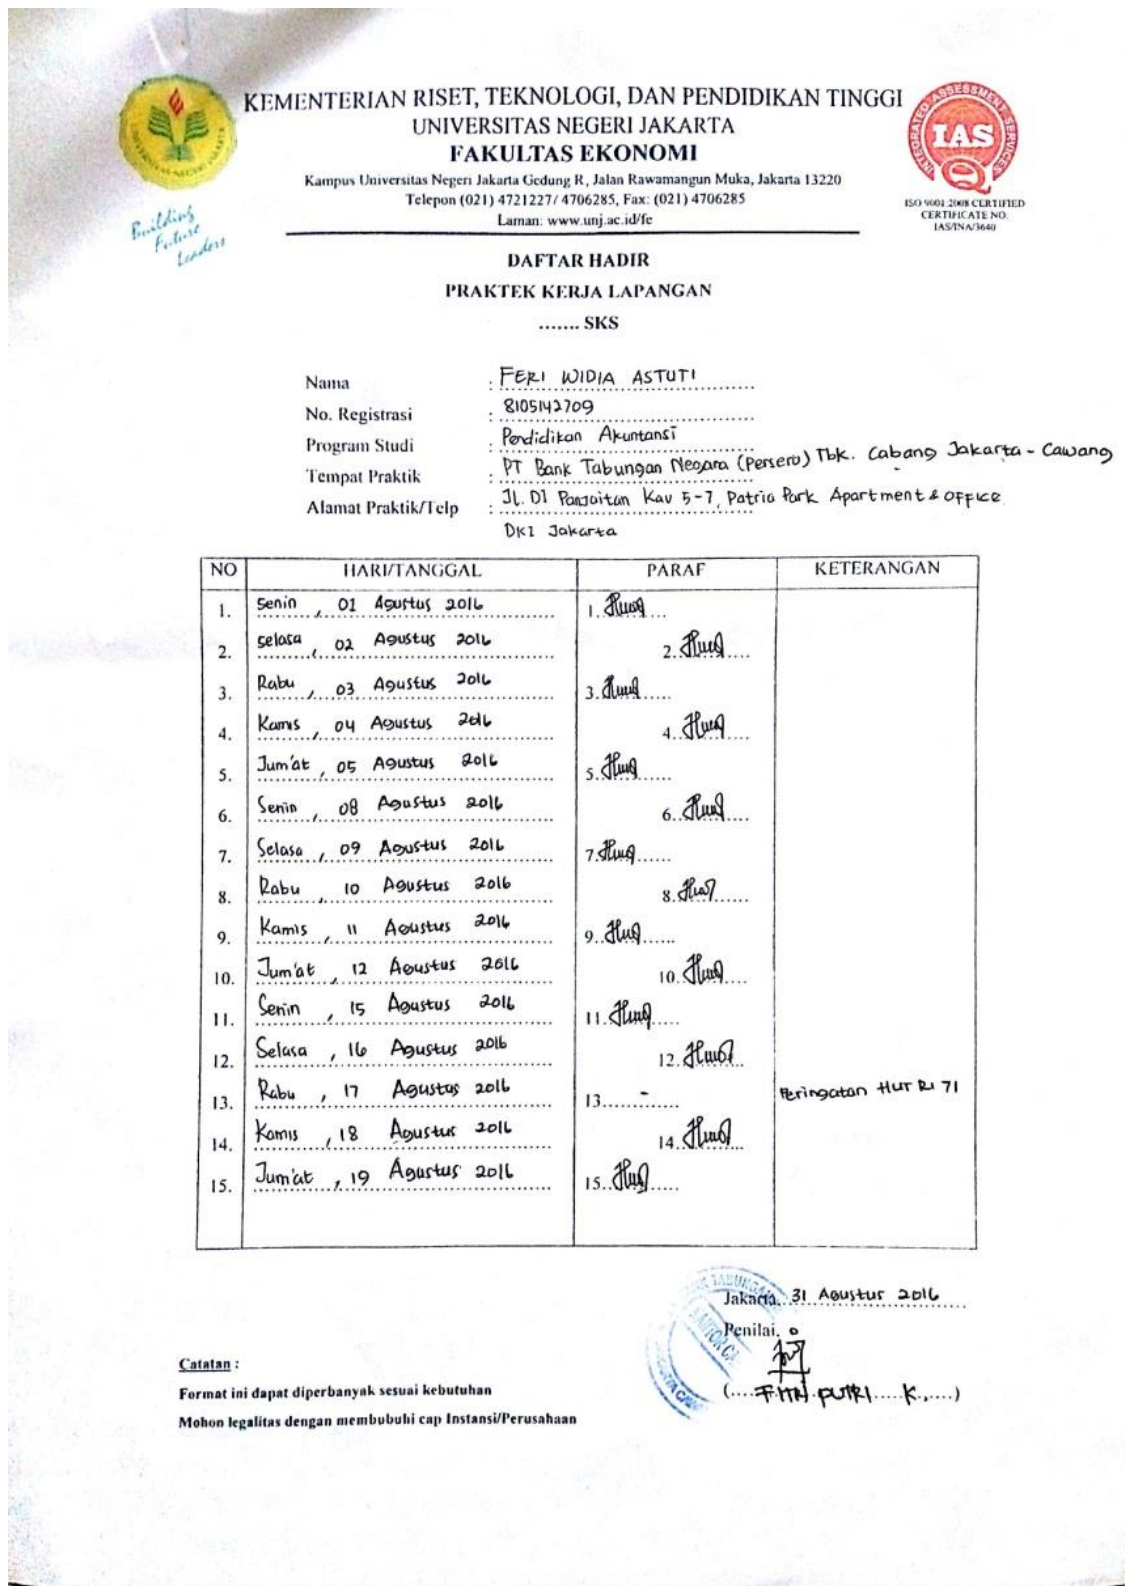 KEMENTERIAN RISET, TEKNOLOGI, DAN PENDIDIKAN TINGGI
UNIVERSITAS NEGERI JAKARTA
FAKULTAS EKONOMI
Kampus Universitas Negeri Jakarta Gedung R, Jalan Rawamangun Muka, Jakarta 13220
Telepon (021) 4721227/ 4706285, Fax: (021) 4706285
Laman: www.unj.ac.id/fe
UNIVERSITAS NEGERI JAKARTA
Building
Future
Leaders
INTEGRATED ASSESSMENT SERVICES
IAS
ISO 9001:2008 CERTIFIED
CERTIFICATE NO.
IAS/INA/3640
DAFTAR HADIR
PRAKTEK KERJA LAPANGAN
....... SKS
Nama : FERI WIDIA ASTUTI
No. Registrasi : 8105142709
Program Studi : Pendidikan Akuntansi
Tempat Praktik : PT Bank Tabungan Negara (Persero) Tbk. Cabang Jakarta - Cawang
Alamat Praktik/Telp : Jl. DI Panjaitan Kav 5-7, Patria Park Apartment & Office
DKI Jakarta
NO HARI/TANGGAL PARAF KETERANGAN
1. Senin, 01 Agustus 2016 1.
2. Selasa, 02 Agustus 2016 2.
3. Rabu, 03 Agustus 2016 3.
4. Kamis, 04 Agustus 2016 4.
5. Jum'at, 05 Agustus 2016 5.
6. Senin, 08 Agustus 2016 6.
7. Selasa, 09 Agustus 2016 7.
8. Rabu, 10 Agustus 2016 8.
9. Kamis, 11 Agustus 2016 9.
10. Jum'at, 12 Agustus 2016 10.
11. Senin, 15 Agustus 2016 11.
12. Selasa, 16 Agustus 2016 12.
13. Rabu, 17 Agustus 2016 13. - Peringatan HUT RI 71
14. Kamis, 18 Agustus 2016 14.
15. Jum'at, 19 Agustus 2016 15.
Jakarta, 31 Agustus 2016
Penilai,
(....FITRI PUTRI....K.....)
Catatan :
Format ini dapat diperbanyak sesuai kebutuhan
Mohon legalitas dengan membubuhi cap Instansi/Perusahaan